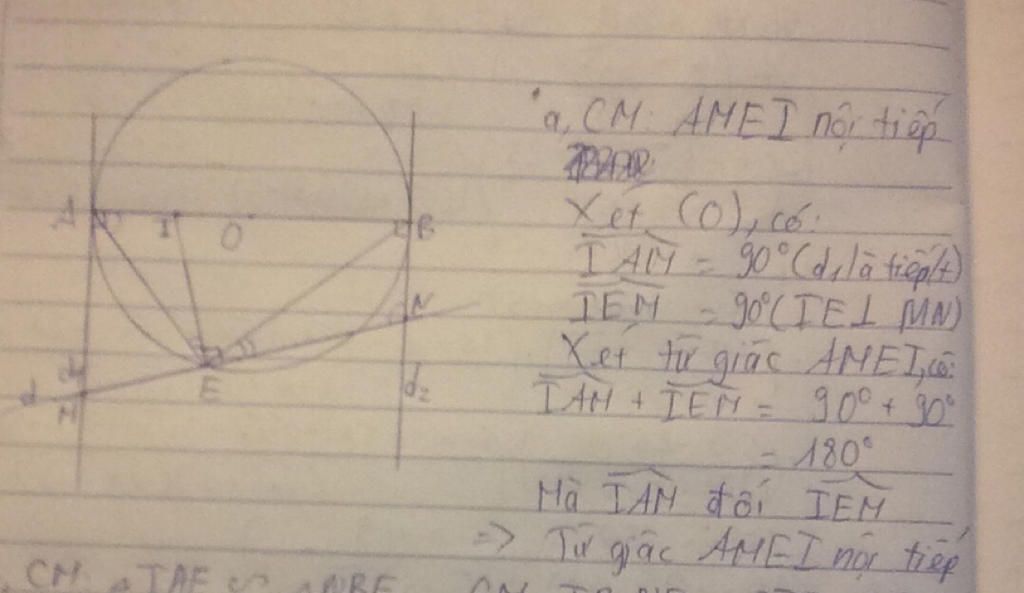 a, CM: AMEI nội tiếp
Xét (O), có:
IAM = 90° (d₁ là tiếp t)
IEM = 90° (IE ⊥ MN)
Xét tứ giác AMEI, có:
IAM + IEM = 90° + 90°
= 180°
Mà IAM đối IEM
=> Tứ giác AMEI nội tiếp
A
I
O
B
N
E
d
M
d₂
CM: △IAE ∽ △NBE